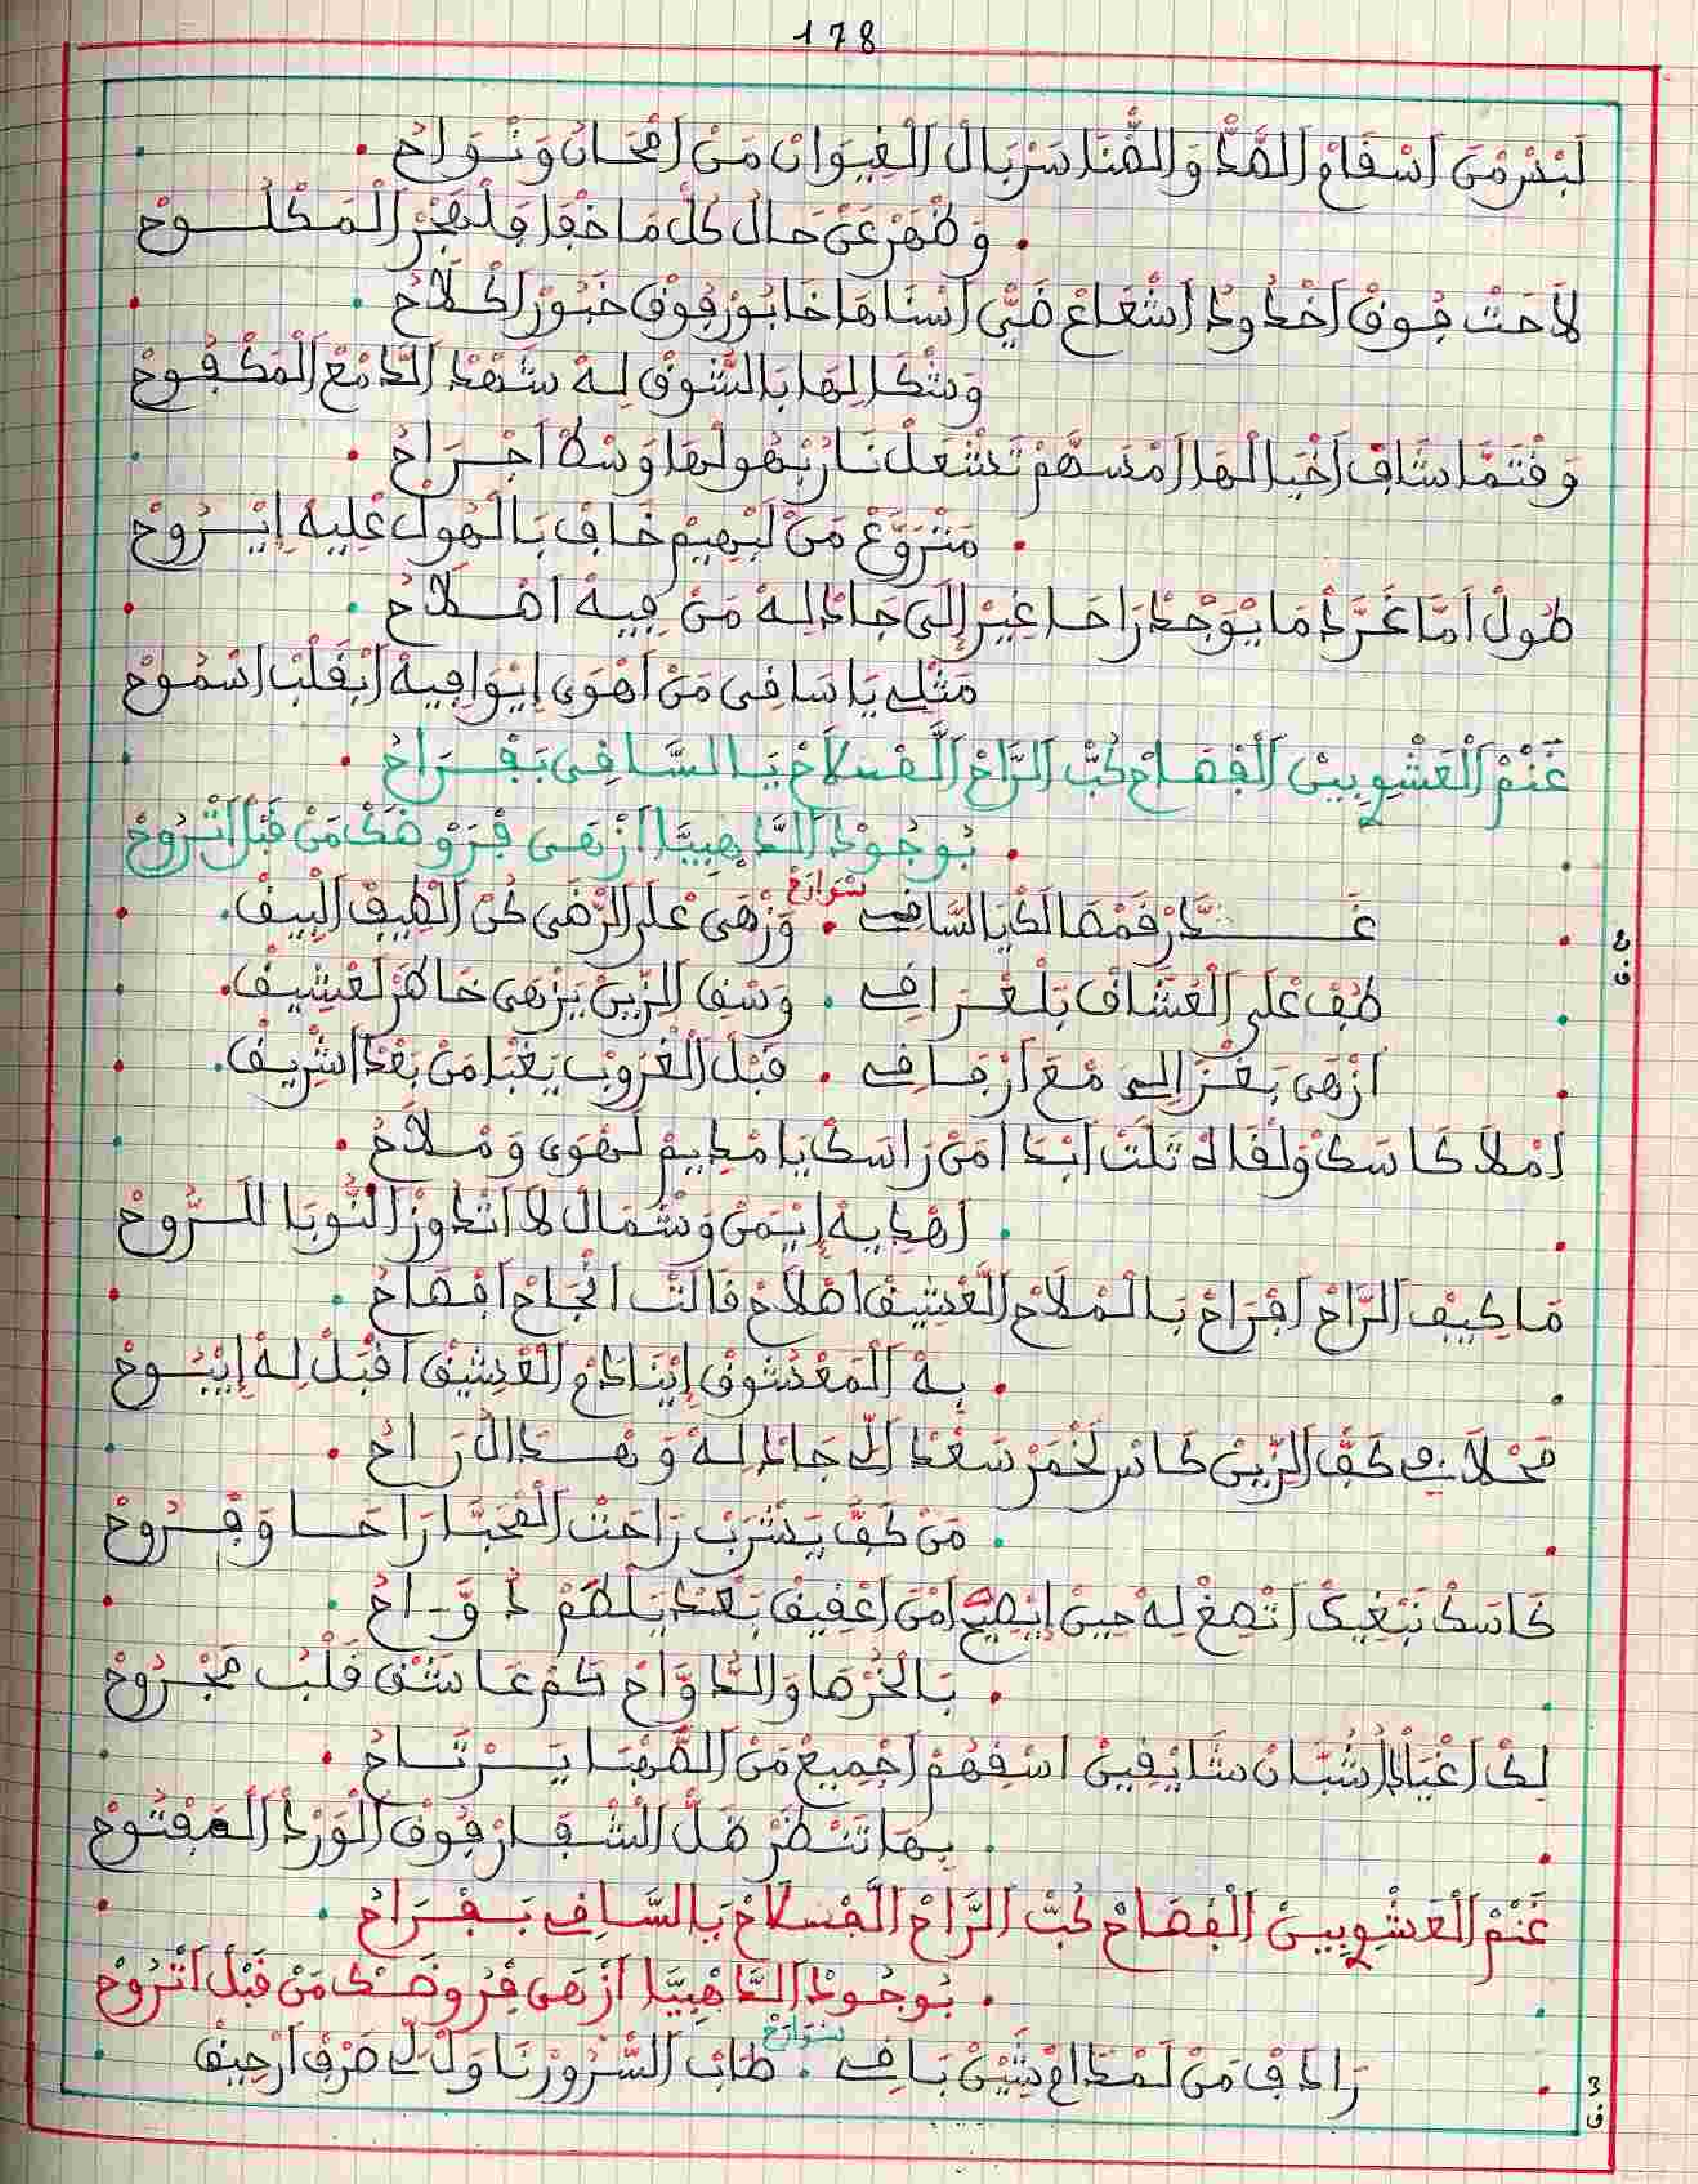 178
لَبْسْ مْنْ اَسْقَامْ الصَّدْ وَالضّْنَا سَرْبَالْ الْغِيوَانْ مَنْ اَمْحَانْ وَنْوَاحُ
وَظْهَرْ عَنْ حَالْ كُلّْ مَا خْفَا فَلْهْجَرْ الْمَكْلُوحْ
لاَحَتْ فُوقْ اَخْدُودْ اَشْعَاعْ ضَيّْ اَسْنَاهَا خَابُورْ فُوقْ خَبُورْ
وَشْكَا لِهَا بَالشُّوقْ لِهْ شَهْدْ الدَّمْعْ الْمَكْفُوحْ
وَقْتَمَّا شَافْ اَخْيَالْهَا اَمْسَهَّمْ تَشْعَلْ نَارْ بْهُولْهَا وَسْطْ اَجْرَاحُ
مَتْرَوَّعْ مَنْ لَبْهِيمْ خَافْ بَالْهُولْ عْلِيهْ اِيْرُوحْ
طُولْ اَمَّا غَرَّدْ مَا يْوَجْدْ رَاحَا غِيرْ إِلَى جَادْ لِهْ مَنْ فِيهْ اَصْلاَحُ
مَثْلِي يَا سَاقِي مَنْ اَهْوَى اِيْوَافِيهْ اَبْقَلْبْ اَسْمُوحْ
غَنْمْ الْعَشْوِيينْ الْفْصَاحْ كُبّْ الرَّاحْ الْفْسَلاَحْ يَا السَّاقِي بَفْرَاحُ
بُوجُودْ الدَّهْبِيَّا اَزْهَى فْرَوْضَكْ مَنْ قَبْلْ اَتْرُوحْ
غَــدَّرْ قَمْصَالَكْ يَا السَّاقِي . وَزْهَى عْلَى الرّْضَى كُنْ الْطِيفْ الْبِيقْ
سْوَارَحْ
طُفْ عْلَى الْعَشَّاقْ بَلْغْرَافِي . وَسْقِ الزِّينْ يَزْهَى خَاطَرْ لَعْشِيقْ
ع
ق
اَزْهَى بَغْزَالِي مْعَ اَرْفَاقِي . قَبْلْ الْغْرُوبْ يَغْبَا مَنْ بَعْدْ اَشْرِيقْ
اَمْلاَ كَاسَكْ وَلْقَاهْ تَلْتْ اَبْدَا مَنْ رَاسَكْ يَا مْدِيمْ لَهْوَى وَمْلاَحُ
اَهْدِيهْ اِيْمَنْ وَشْمَالْ لاَ اَتْدَوَّزْ النُّوبَا لَلرُّوحْ
مَا كِيفْ الرَّاحْ اَفْرَاحْ بَالْمْلاَحْ الْعْشِيقْ اَصْلاَحْ قَالَتْ اَنْجَاحْ اَفْصَاحُ
بِهْ الْمَعْشُوقْ اِيْنَادَمْ الْعْشِيقْ اَقْبَلْ لِهْ اِيْبُوحْ
مَحْلاَ فِي كَفّْ الزِّينْ كَاسْ لَخْمَرْ سَعْدْ الِّي جَادْ لِهْ وَهْدَالُ رَاحُ
مَنْ كَفُّ يَشْرَبْ رَاحْتْ الْمْحَبَّا رَاحَا وَفْرُوحْ
كَاسَكْ نَبْغِيكْ اَتْصِغْ لِهْ حِينْ اِيْصِيحْ اَمَنْ اَعْقِيقْ بَعْدْ يَلْطَمْ دَوَّاحُ
بَالْخُرْصَا وَالدَّوَّاحْ كَمْ عَاشَقْ قَلْبُ مَجْرُوحْ
لِكْ اَعْيَادْ اَشُبَّانْ شَايْقِينْ اَسْقِهُمْ اَجْمِيعْ مَنْ الصَّهْبَا يَرْتَاحُ
بِهَا تَنْظَرْ ضَلّْ الْشْفَارْ فُوقْ الْوَرْدْ الْمَفْتُوحْ
غَنْمْ الْعَشْوِيينْ الْفْصَاحْ كُبّْ الرَّاحْ الْفْسَلاَحْ يَا السَّاقِي بَفْرَاحُ
بُوجُودْ الدَّهْبِيَّا اَزْهَى فْرَوْضَكْ مَنْ قَبْلْ اَتْرُوحْ
رَادَقْ مَنْ لَمْدَامْ شَيّْنْ بَاقِي . طَابْ السّْرُورْ نَاوَلْ لِي صَرْفْ اَرْحِيقْ
سْوَارَحْ
3
ق